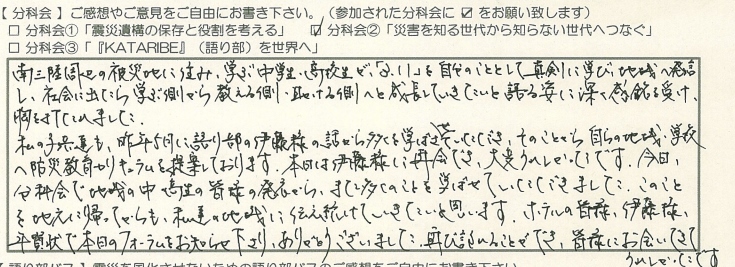 【 分科会 】 ご感想やご意見をご自由にお書き下さい。（参加された分科会に ☑ をお願い致します）
□ 分科会①「震災遺構の保存と役割を考える」 ☑ 分科会②「災害を知る世代から知らない世代へつなぐ」
□ 分科会③「『KATARIBE』（語り部）を世界へ」
南三陸周辺の被災地に住み、学ぶ中学生・高校生が、「3.11」を自分のこととして真剣に学び、地域へ発信
し、社会に出たら学ぶ側から教える側・助ける側へと成長していきたいと語る姿に深く感銘を受け、
胸をうたれました。
私の子供達も、昨年5月に語り部の伊藤様の話から多くを学ばせていただき、そのことから自らの地域・学校
へ防災教育カリキュラムを提案しております。本日は伊藤様に再会でき、大変うれしかったです。今日、
分科会で地域の中高生の皆様の発表から、また多くのことを学ばせていただきました。このこと
を地元に帰ってからも、私達の地域に伝え続けていきたいと思います。ホテルの皆様、伊藤様、
年賀状で本日のフォーラムをお知らせ下さり、ありがとうございました。再び訪れることができ、皆様にお会いできて
うれしかったです
【 語り部バス 】 震災を風化させないための語り部バスのご感想をご自由にお書き下さい